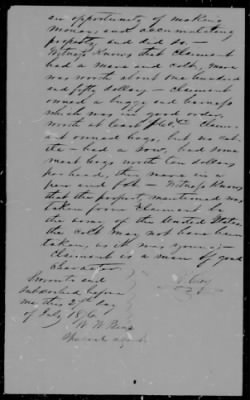 an opportunity of making
money and accumulating
property and did so —
Witness knows that Claimant
had a mare and colt, mare
was worth about one hundred
and fifty dollars — Claimant
owned a buggy and harness
which was in good order,
worth at least Claim-
ant owned hogs, but no cat-
tle — had a sow, had some
meat hogs worth ten dollars
per head, they were in a
pen and fat — Witness knows
that the property mentioned was
taken from Claimant by
the army of the United States
the colt may not have been
taken, as it was young; —
Claimant is a man of good
character
Sworn to and
subscribed before
me this 27th day
of July 187
W. W.
Special Agent